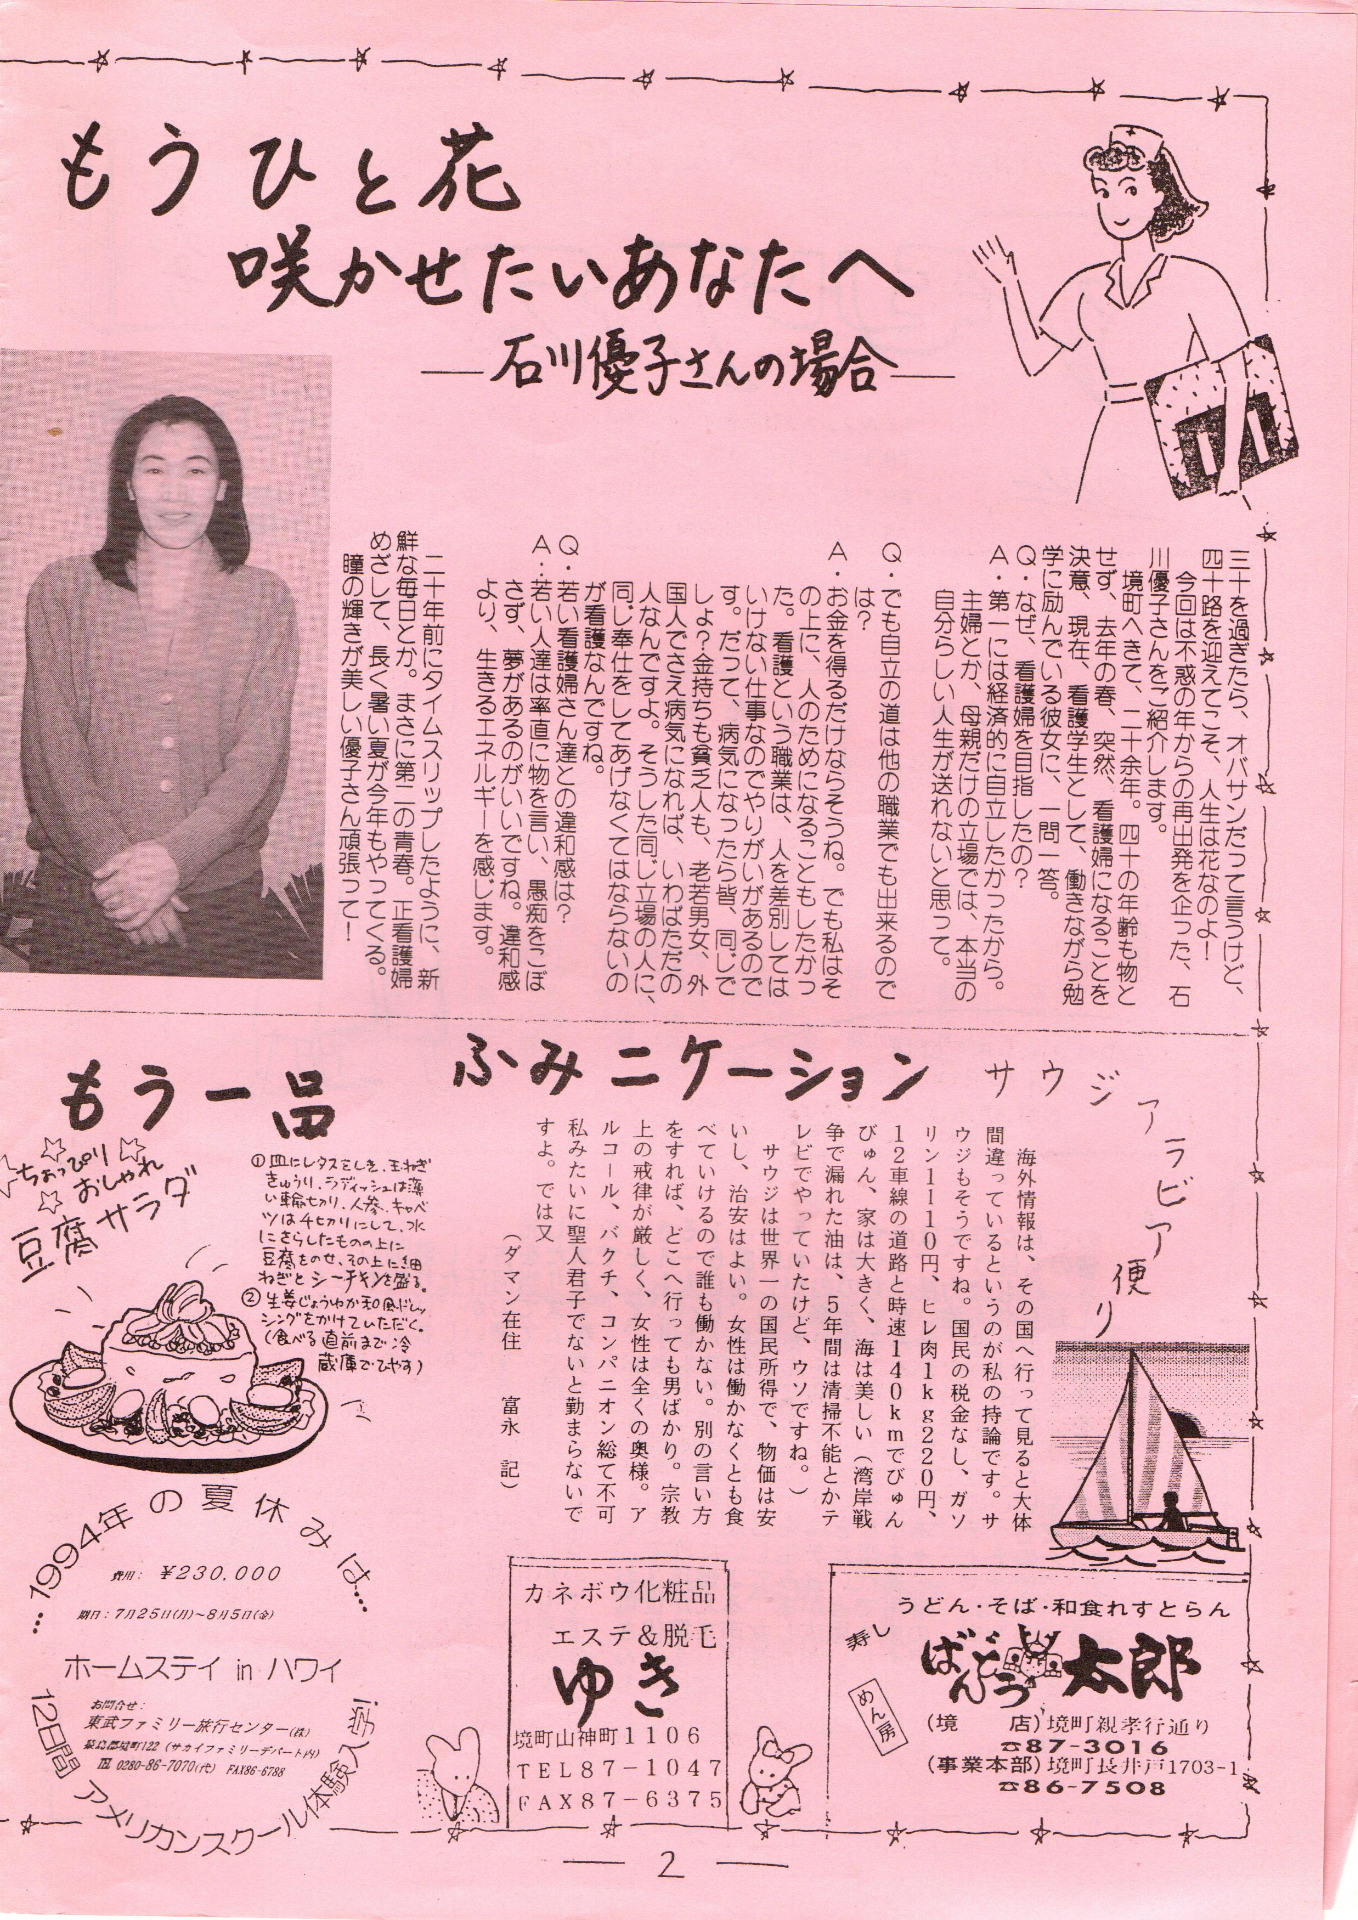 もうひと花
咲かせたいあなたへ
――石川優子さんの場合――
三十を過ぎたら、オバサンだって言うけど、
四十路を迎えてこそ、人生は花なのよ!
今回は不惑の年からの再出発を企った、石
川優子さんをご紹介します。
境町へきて、二十余年。四十の年齢も物と
せず、去年の春、突然、看護婦になることを
決意、現在、看護学生として、働きながら勉
学に励んでいる彼女に、一問一答。
Q・なぜ、看護婦を目指したの?
A・第一には経済的に自立したかったから。
主婦とか、母親だけの立場では、本当の
自分らしい人生が送れないと思って。
Q・でも自立の道は他の職業でも出来るので
は?
A・お金を得るだけならそうね。でも私はそ
の上に、人のためになることもしたかっ
た。看護という職業は、人を差別しては
いけない仕事なのでやりがいがあるので
す。だって、病気になったら皆、同じで
しょ?金持ちも貧乏人も、老若男女、外
国人でさえ病気になれば、いわばただの
人なんですよ。そうした同じ立場の人に、
同じ奉仕をしてあげなくてはならないの
が看護なんですね。
Q・若い看護婦さん達との違和感は?
A:若い人達は率直に物を言い、愚痴をこぼ
さず、夢があるのがいいですね。違和感
より、生きるエネルギーを感じます。
二十年前にタイムスリップしたように、新
鮮な毎日とか。まさに第二の青春。正看護婦
めざして、長く暑い夏が今年もやってくる。
瞳の輝きが美しい優子さん頑張って!
ふみニケーション
サウジアラビア便り
海外情報は、その国へ行って見ると大体
間違っているというのが私の持論です。サ
ウジもそうですね。国民の税金なし、ガソ
リン1110円、ヒレ肉1kg220円、
12車線の道路と時速140kmでびゅん
びゅん、家は大きく、海は美しい(湾岸戦
争で漏れた油は、5年間は清掃不能とかテ
レビでやっていたけど、ウソですね。)
サウジは世界一の国民所得で、物価は安
いし、治安はよい。女性は働かなくとも食
べていけるので誰も働かない。別の言い方
をすれば、どこへ行っても男ばかり。宗教
上の戒律が厳しく、女性は全くの奥様。ア
ルコール、バクチ、コンパニオン総て不可
私みたいに聖人君子でないと勤まらないで
すよ。では又
(ダマン在住 富永 記)
もう一品
ちょっぴり
おしゃれ
豆腐サラダ
①皿にレタスをしき、玉ねぎ
きゅうり、ラディッシュは薄
い輪切り、人参、キャベ
ツは千切りにして、水
にさらしたものの上に
豆腐をのせ、その上に細
ねぎとシーチキンを盛る。
②生姜じょうゆか和風ドレッ
シングをかけていただく。
(食べる直前まで冷
蔵庫でひやす)
…1994年の夏休みは…
費用: ¥230,000
期日:7月25日(月)~8月5日(金)
ホームステイ in ハワイ
お問合せ:
東武ファミリー旅行センター(株)
猿島郡境町122(サカイファミリーデパート内)
TEL 0280-86-7070(代) FAX86-6788
12日間 アメリカンスクール体験入学!
カネボウ化粧品
エステ&脱毛
ゆき
境町山神町1106
TEL87-1047
FAX87-6375
うどん・そば・和食れすとらん
寿し
めん房
ばんどう太郎
(境 店)境町親孝行通り
☎87-3016
(事業本部)境町長井戸1703-1
☎86-7508
― 2 ―